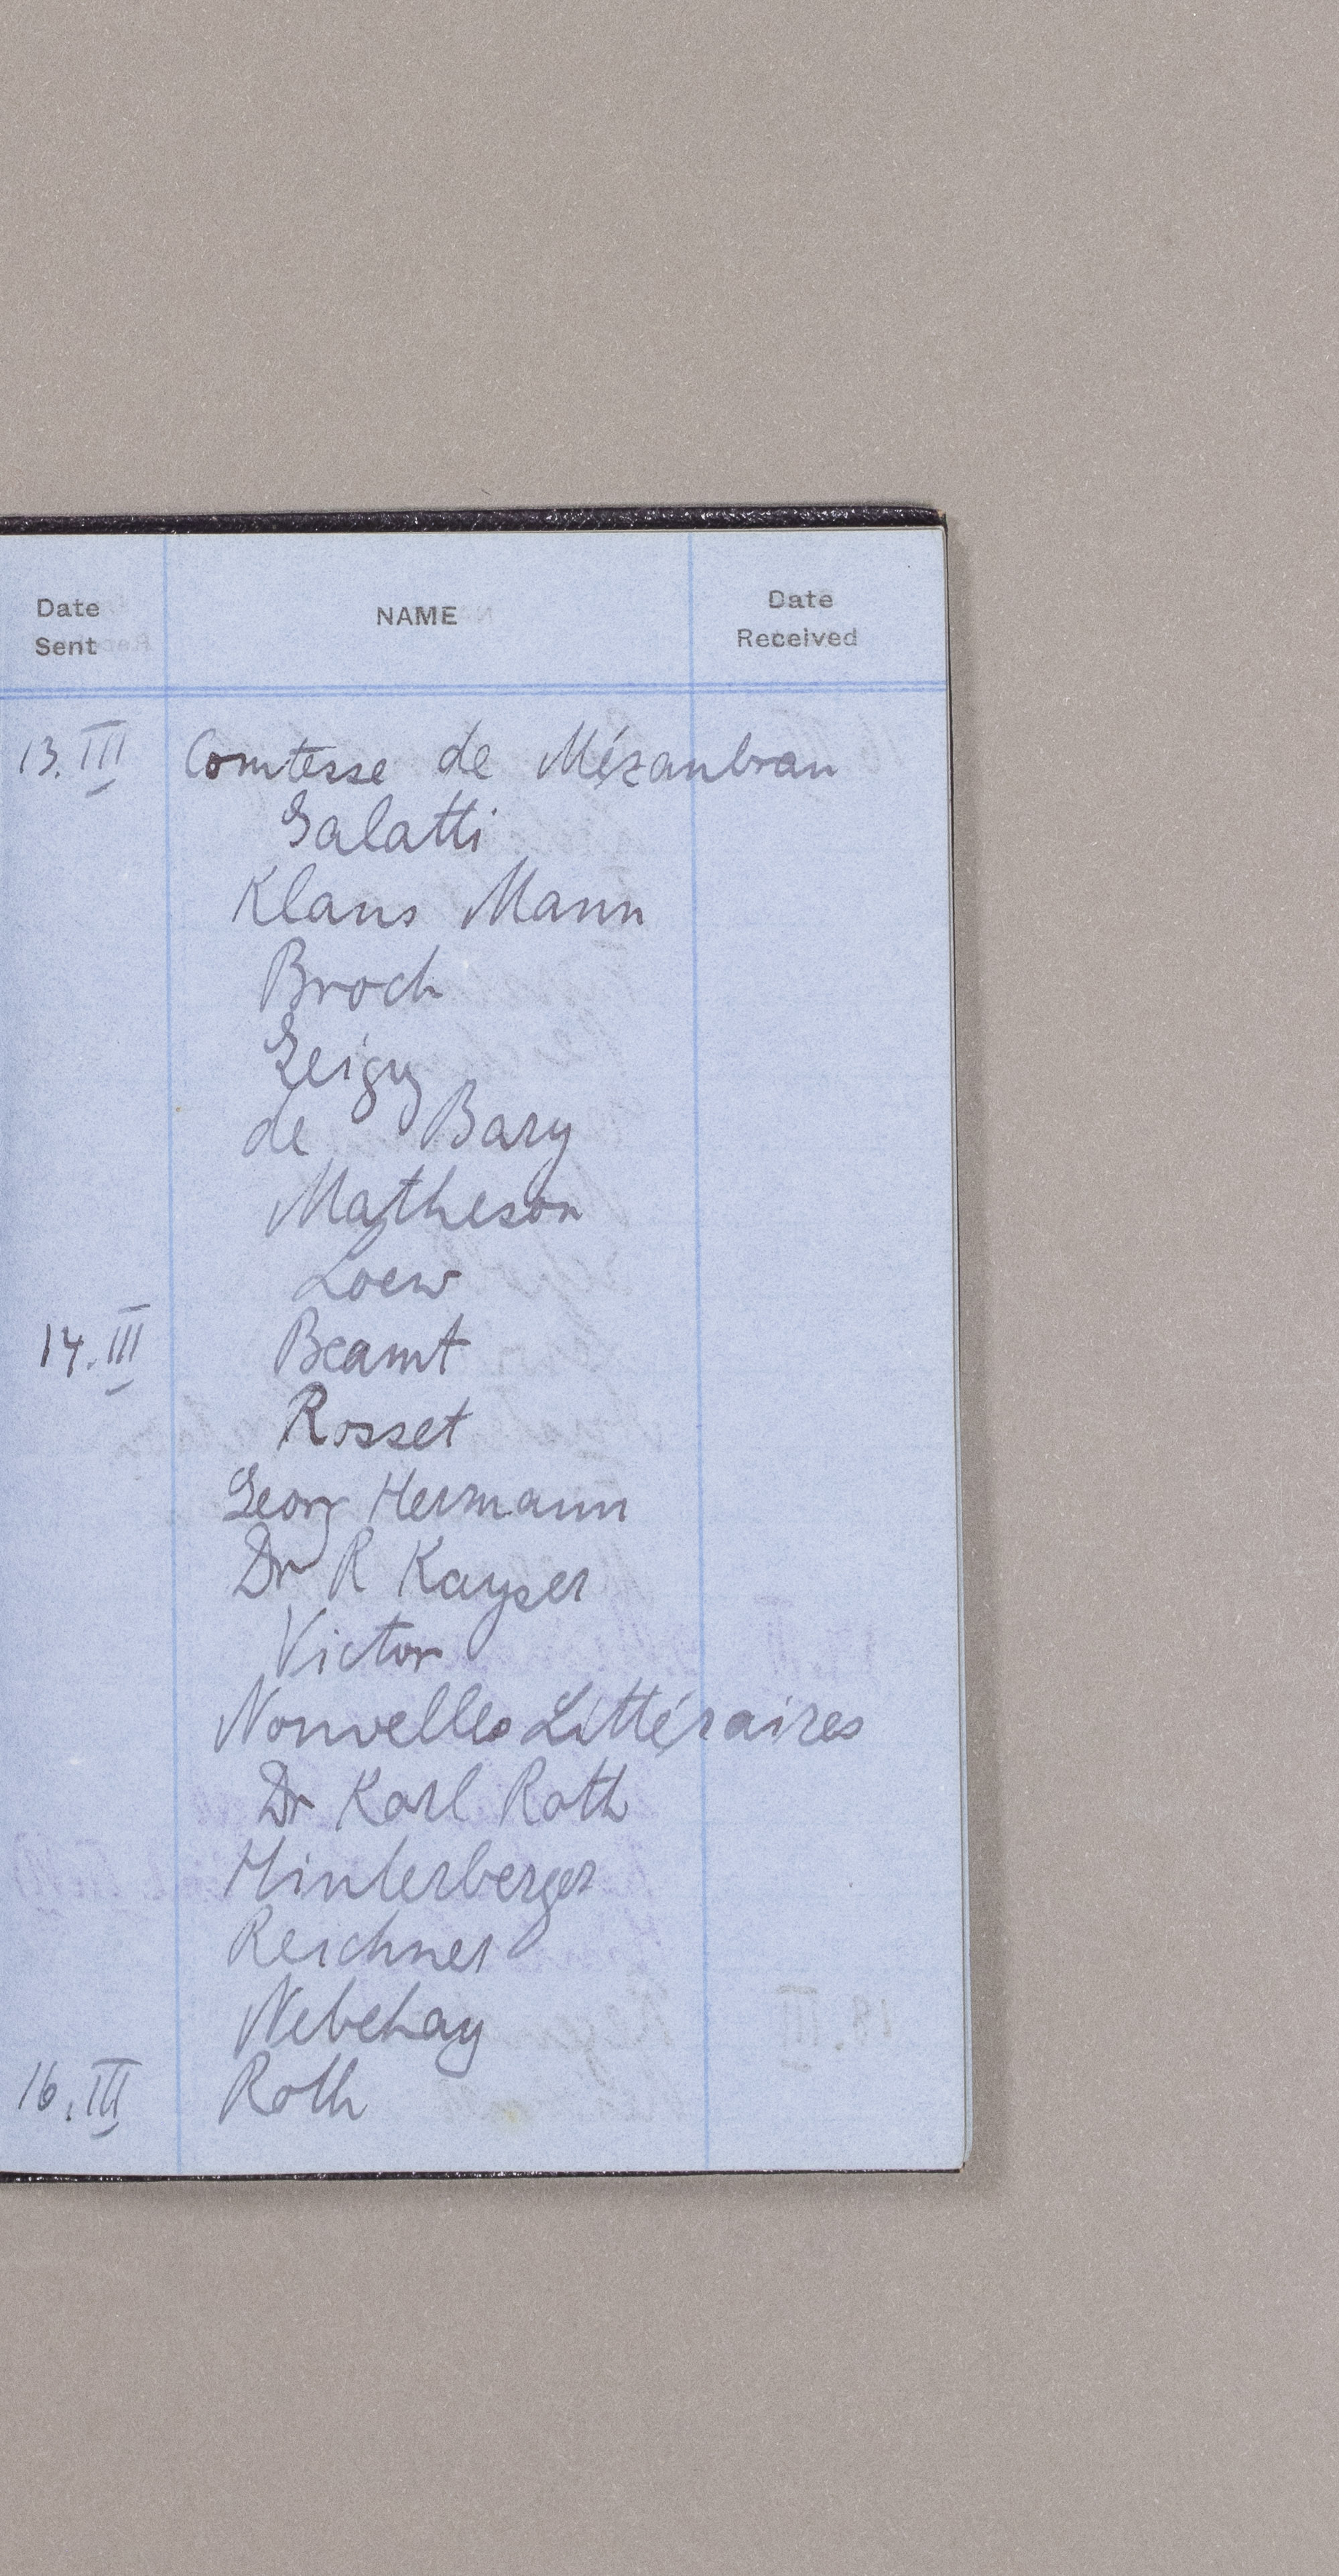 Date Sent NAME Date Received
13. III Comtesse de Mézanbran
Galatti
Klaus Mann
Broch
Geigy
de Bary
Matheson
Loew
14. III Beamt
Rosset
Georg Hermann
Dr R Kayser
Victor
Nouvelles Littéraires
Dr Karl Roth
Hinterberger
Reichner
Nebehay
16. III Roth